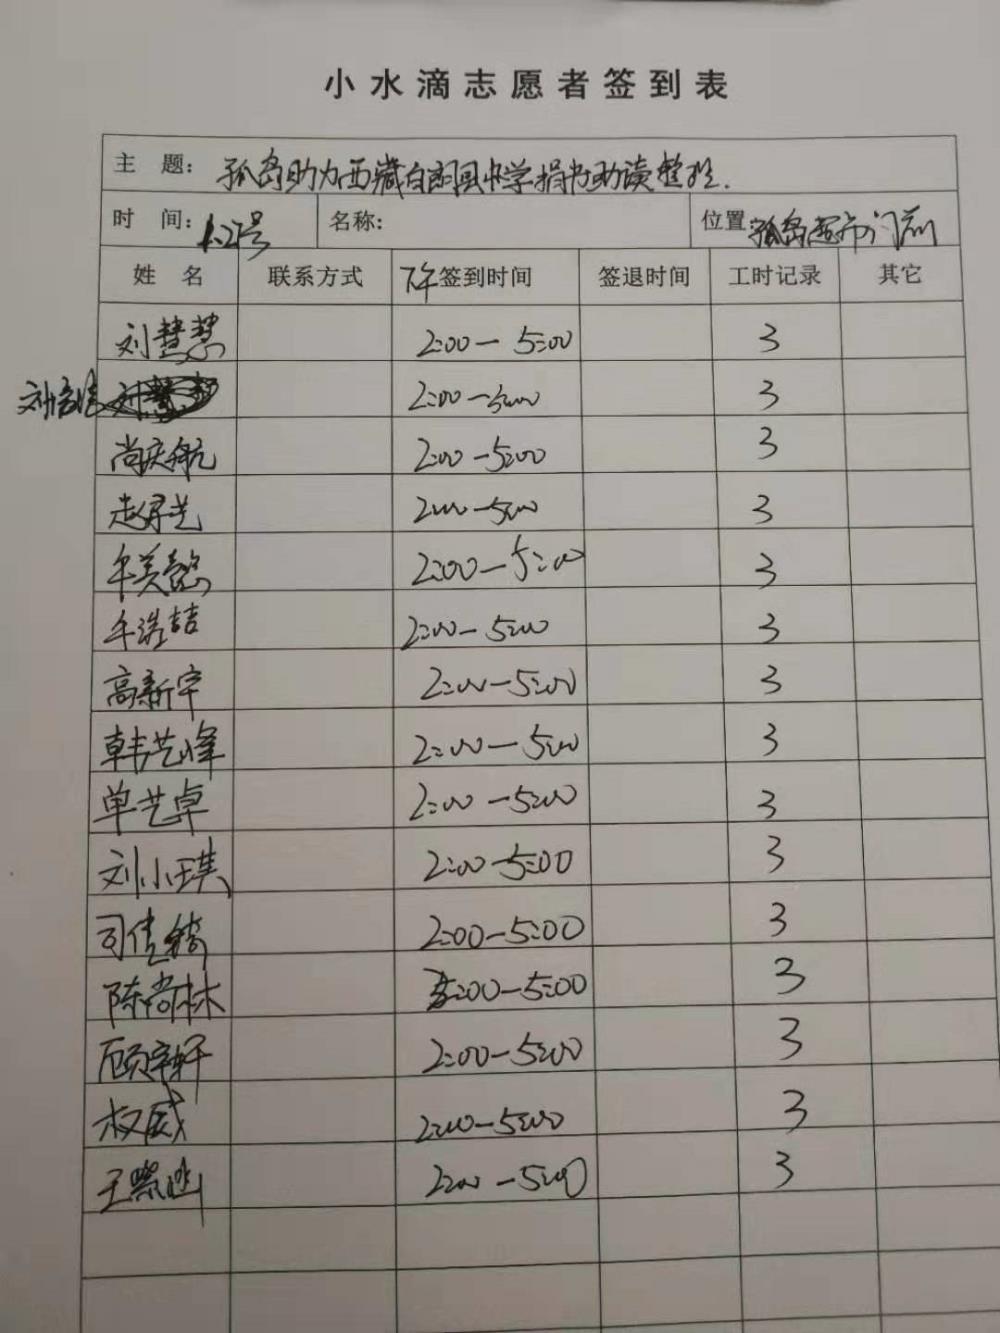 小水滴志愿者签到表
主 题: 孤岛助力西藏白朗县中学捐书助读整理.
时 间: 1.21号 名称: 位置 孤岛超市门前
姓 名 联系方式 下午签到时间 签退时间 工时记录 其它
刘慧慧 2:00-5:00 3
2:00-5:00 3
尚庆航 2:00-5:00 3
2:00-5:00 3
牟美懿 2:00-5:00 3
牟浩喆 2:00-5:00 3
高新宇 2:00-5:00 3
韩艺峰 2:00-5:00 3
单艺卓 2:00-5:00 3
刘小琪 2:00-5:00 3
司佳 2:00-5:00 3
陈尚林 2:00-5:00 3
顾宇轩 2:00-5:00 3
权威 2:00-5:00 3
王 2:00-5:00 3